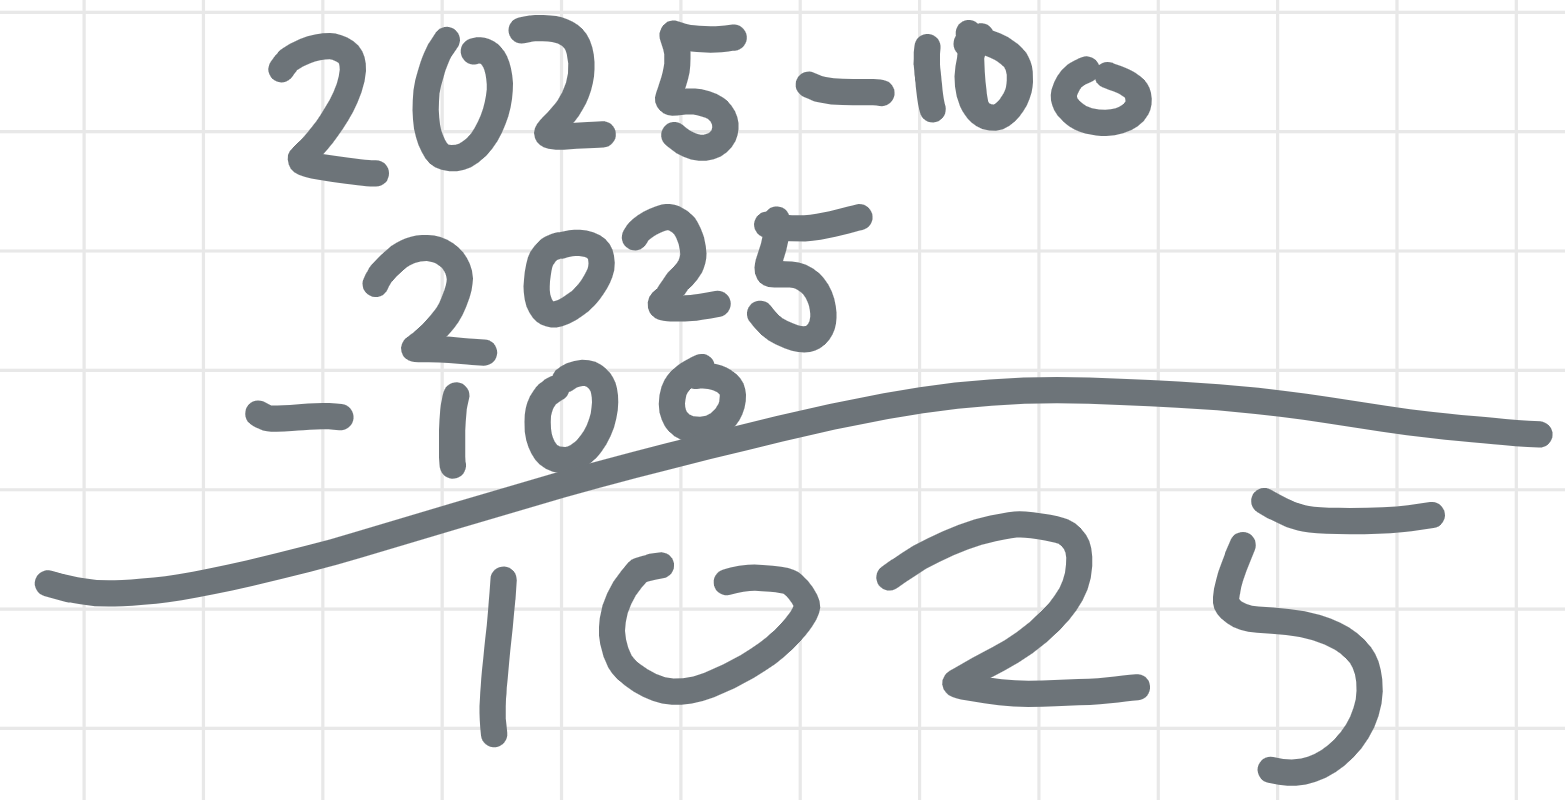 2025-100
2025
-100
1025